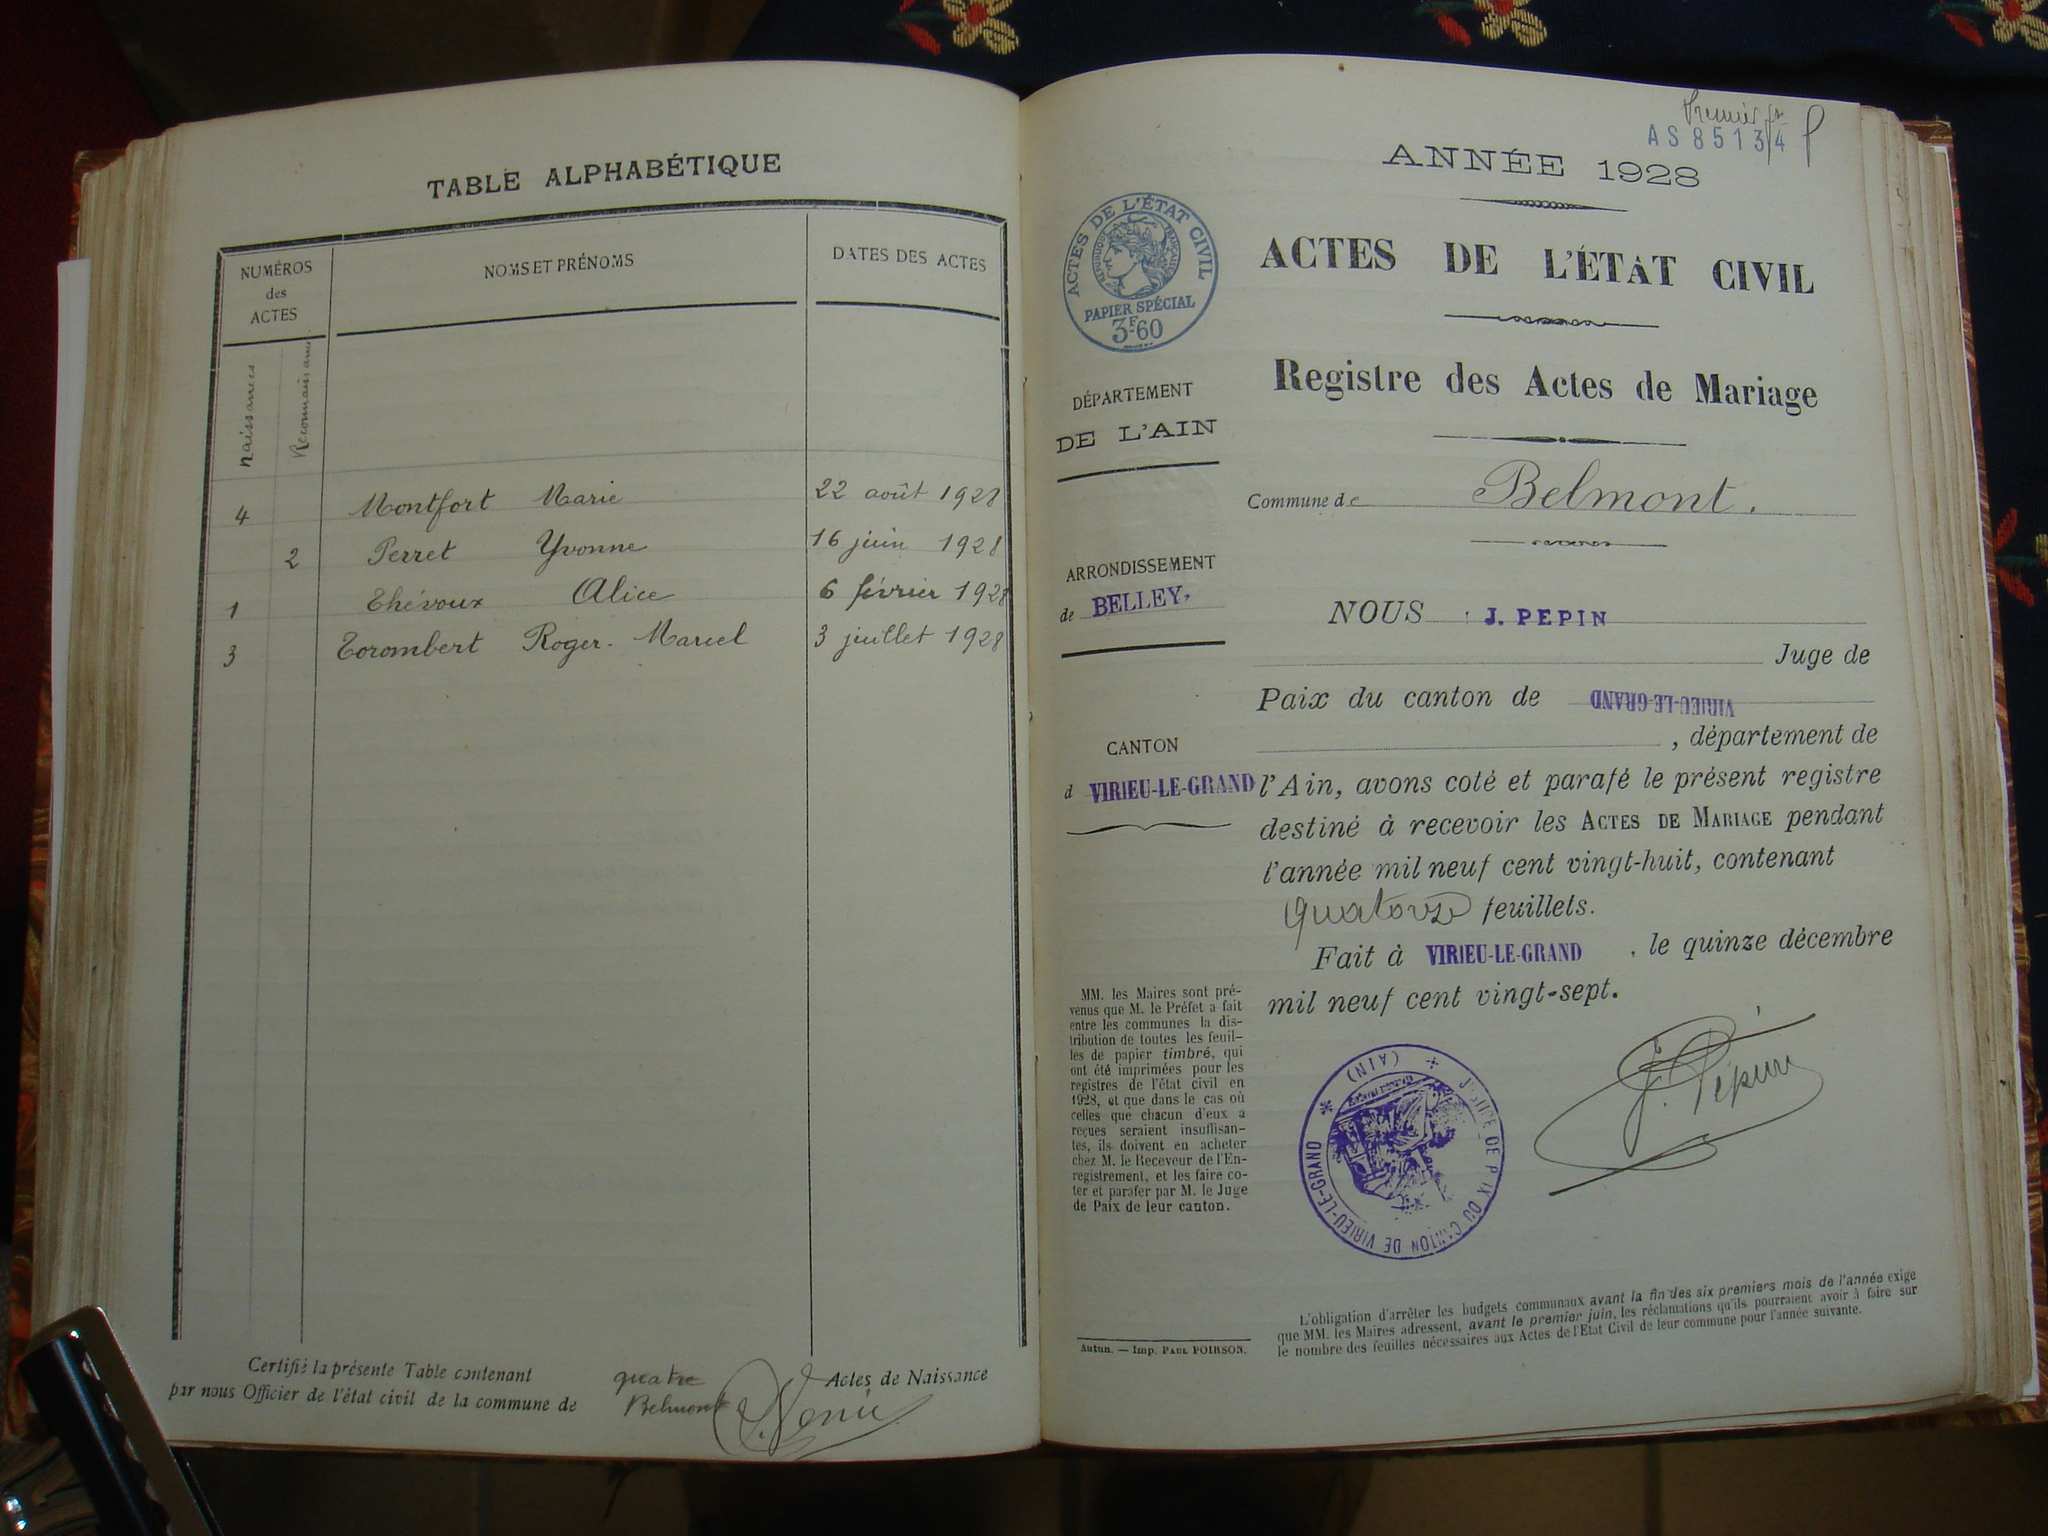 TABLE ALPHABÉTIQUE
NUMÉROS
des
ACTES
NOMS ET PRÉNOMS
DATES DES ACTES
Naissances
Reconnaissances
4 Montfort Marie 22 août 1928
2 Perret Yvonne 16 juin 1928
1 Thévoux Alice 6 février 1928
3 Torombert Roger-Marcel 3 juillet 1928
Certifié la présente Table contenant quatre Actes de Naissance
par nous Officier de l'état civil de la commune de Belmont
Premier
AS 85134
ANNÉE 1928
ACTES DE L'ÉTAT CIVIL
RÉPUBLIQUE FRANÇAISE
PAPIER SPÉCIAL
3F60
ACTES DE L'ÉTAT CIVIL
Registre des Actes de Mariage
DÉPARTEMENT
DE L'AIN
Commune de Belmont.
ARRONDISSEMENT
de BELLEY,
CANTON
d VIRIEU-LE-GRAND
NOUS J. PEPIN
Juge de
Paix du canton de VIRIEU-LE-GRAND
, département de
l'Ain, avons coté et parafé le présent registre
destiné à recevoir les ACTES DE MARIAGE pendant
l'année mil neuf cent vingt-huit, contenant
quatorze feuillets.
Fait à VIRIEU-LE-GRAND, le quinze décembre
mil neuf cent vingt-sept.
J. Pépin
JUSTICE DE PAIX DU CANTON DE VIRIEU-LE-GRAND * (AIN) *
MM. les Maires sont pré-
venus que M. le Préfet a fait
entre les communes la dis-
tribution de toutes les feuil-
les de papier timbré, qui
ont été imprimées pour les
registres de l'état civil en
1928, et que dans le cas où
celles que chacun d'eux a
reçues seraient insuffisan-
tes, ils doivent en acheter
chez M. le Receveur de l'En-
registrement, et les faire co-
ter et parafer par M. le Juge
de Paix de leur canton.
Autun. — Imp. PAUL POIRSON.
L'obligation d'arrêter les budgets communaux avant la fin des six premiers mois de l'année exige
que MM. les Maires adressent, avant le premier juin, les réclamations qu'ils pourraient avoir à faire sur
le nombre des feuilles nécessaires aux Actes de l'Etat Civil de leur commune pour l'année suivante.